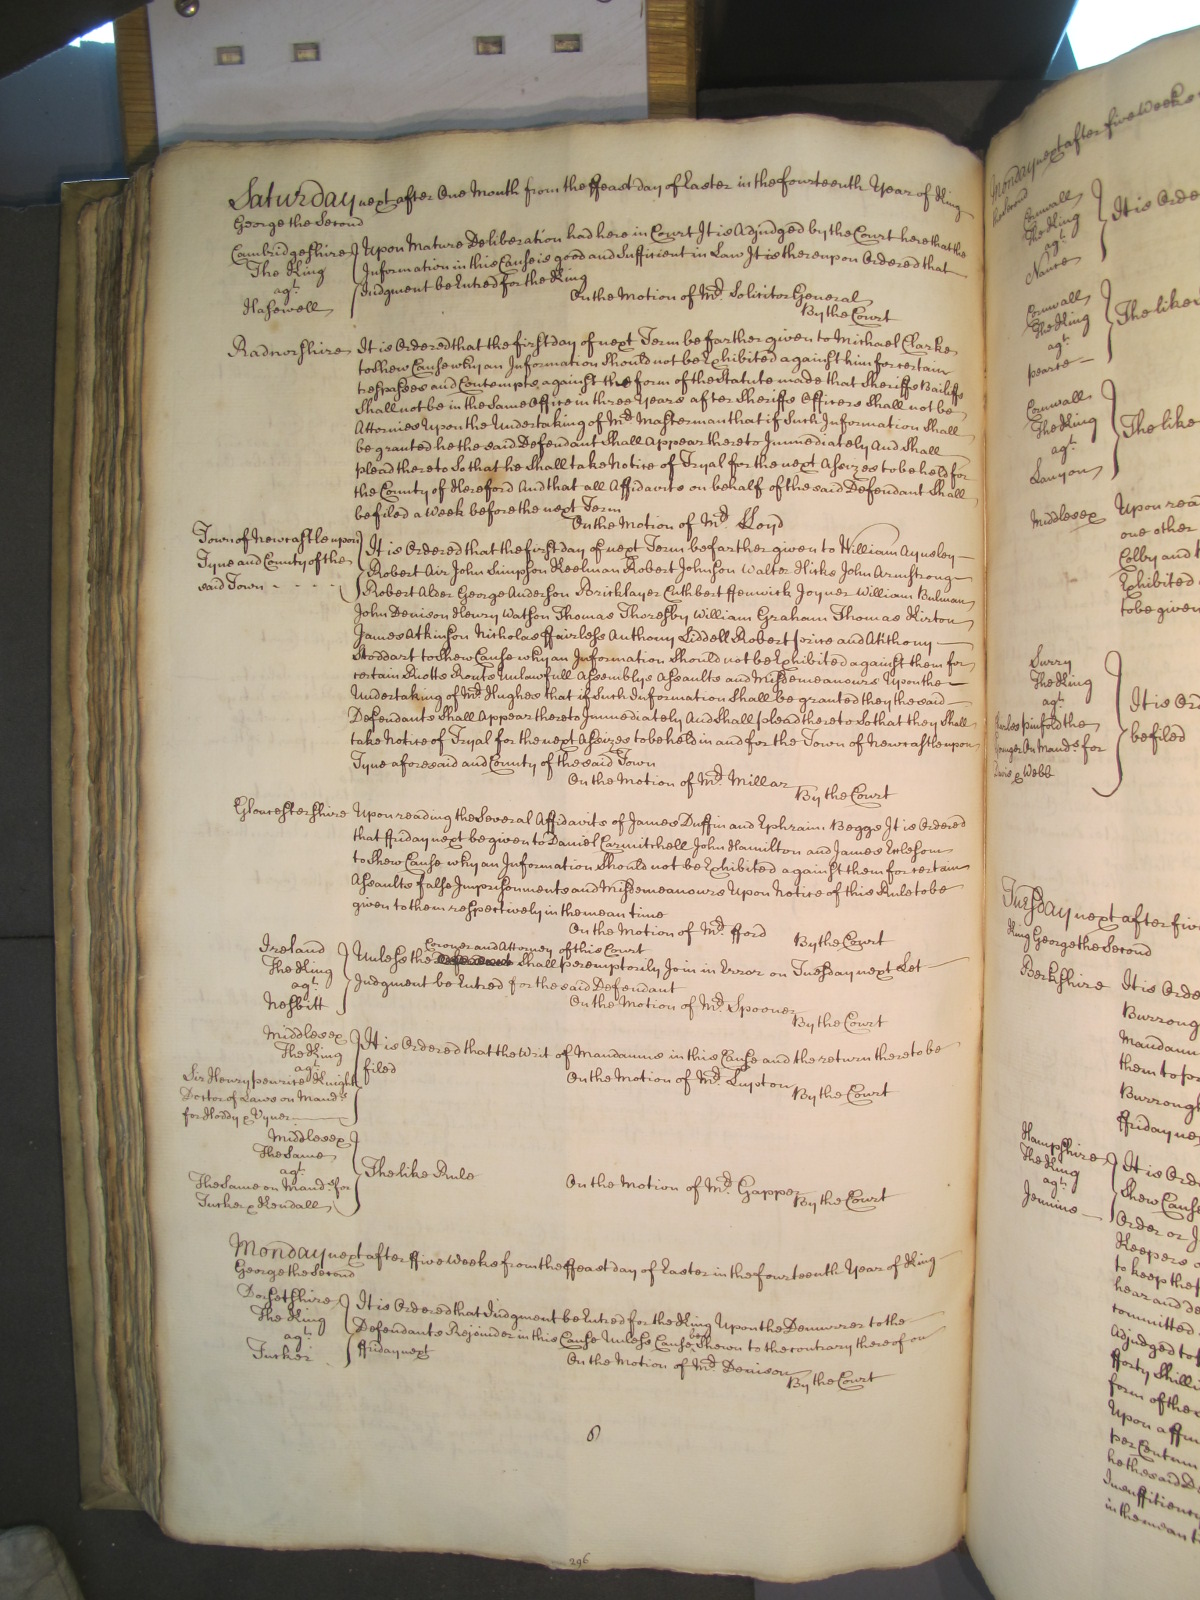 Saturday next after One Month from the ffeast day of Easter in the fourteenth Year of King
George the Second
Cambridgeshire
The King
agt.
Hasewell
Upon Mature Deliberation had here in Court It is Adjudged by the Court here that the
Information in this Cause is good and Sufficient in Law It is thereupon Ordered that
Judgment be Entred for the King
On the Motion of Mr. Solicitor General
By the Court
Radnorshire
It is Ordered that the first day of next Term be farther given to Michael Clarke
to shew Cause why an Information Should not be Exhibited against him for certain
trespasses and Contempts against the form of the Statute made that Sheriffs Bailiffs
Shall not be in the Same Office in three Years after Sheriffs Officers Shall not be
Attornies Upon the Undertaking of Mr. Masterman that if Such Information Shall
be granted he the said Defendant Shall Appear thereto Immediately And Shall
plead thereto So that he Shall take Notice of Tryal for the next Assizes to be held for
the County of Hereford And that all Affidavits on behalf of the said Defendant Shall
be filed a Week before the next Term
On the Motion of Mr. Lloyd
Town of Newcastle upon
Tyne and County of the
said Town
It is Ordered that the first day of next Term be farther given to William Aynsley
Robert Air John Simpson Keelman Robert Johnson Walter Hicks John Armstrong
Robert Alder George Anderson Bricklayer Cuthbert ffenwick Joyner William Bulman
John Denison Henry Watson Thomas Thoresby William Graham Thomas Kirton
James Atkinson Nicholas ffairless Anthony Liddell Robert price and Anthony
Stoddart to shew Cause why an Information Should not be Exhibited against them for
certain Riotts Routs Unlawfull Assemblys Assaults and Misdemeanours Upon the
Undertaking of Mr. Hughes that if Such Information Shall be granted they the said
Defendants Shall Appear thereto Immediately And Shall plead thereto So that they Shall
take Notice of Tryal for the next Assizes to be held in and for the Town of Newcastle upon
Tyne aforesaid and County of the said Town
On the Motion of Mr. Millar
By the Court
Gloucestershire
Upon reading the Several Affidavits of James Duffin and Ephraim Beggs It is Ordered
that ffriday next be given to Daniel Carmitchell John Hamilton and James
to shew Cause why an Information Should not be Exhibited against them for certain
Assaults false Imprisonments and Misdemeanours Upon Notice of this Rule to be
given to them respectively in the mean time
On the Motion of Mr. fford
By the Court
Ireland
The King
agt.
Nesbitt
Coroner and Attorney of this Court
Unless the Shall peremptorily Join in Error on Tuesday next Let
Judgment be Entred for the said Defendant
On the Motion of Mr. Spooner
By the Court
Middlesex
The King
agt.
Sir Henry penrice Knight
Doctor of Laws on Mands.
for Hoddy & Vyner
It is Ordered that the Writ of Mandamus in this Cause and the return thereto be
filed
On the Motion of Mr. Lupton
By the Court
Middlesex
The Same
agt.
The Same on Mands. for
Tucker & Kendall
The like Rule
On the Motion of Mr. Gapper
By the Court
Monday next after ffive Weeks from the ffeast day of Easter in the fourteenth Year of King
George the Second
Dorsetshire
The King
agt.
Tucker
It is Ordered that Judgment be Entred for the King Upon the Demurrer to the
Defendants Rejoinder in this Cause Unless Cause be Shewn to the contrary thereof on
ffriday next
On the Motion of Mr. Denison
By the Court
296
Monday next after five Weeks
Cornwall
The King
agt.
Nance
It is Orde
Cornwall
The King
agt.
pearce
The like
Cornwall
The King
agt.
Lanyon
The like
Middlesex
Upon rea
one other
Colby and
Exhibited
to be given
Surry
The King
agt.
Charles pinfold the
younger On Mands. for
Davis & Webb
It is Ord
be filed
Tuesday next after five
King George the Second
Berkshire
It is Orde
Burroug
Mandam
them to p
Burrough
ffriday ne
Hampshire
The King
agt.
Jennins
It is Ord
Shew Cause
Order or J
Keepers o
to keep the
hear and de
committed
Adjudged to
fforty Shilli
form of the
Upon affir
per Centum
he the said D
Insufficiency
in the mean t